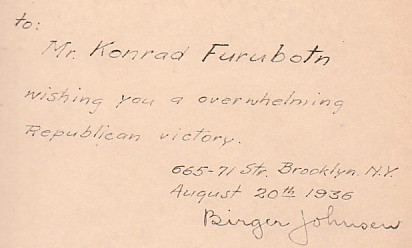 to:
Mr. Konrad Furubotn
wishing you a overwhelming
Republican victory.
665-71 Str. Brooklyn. N.Y.
August 20th 1936
Birger Johnsen